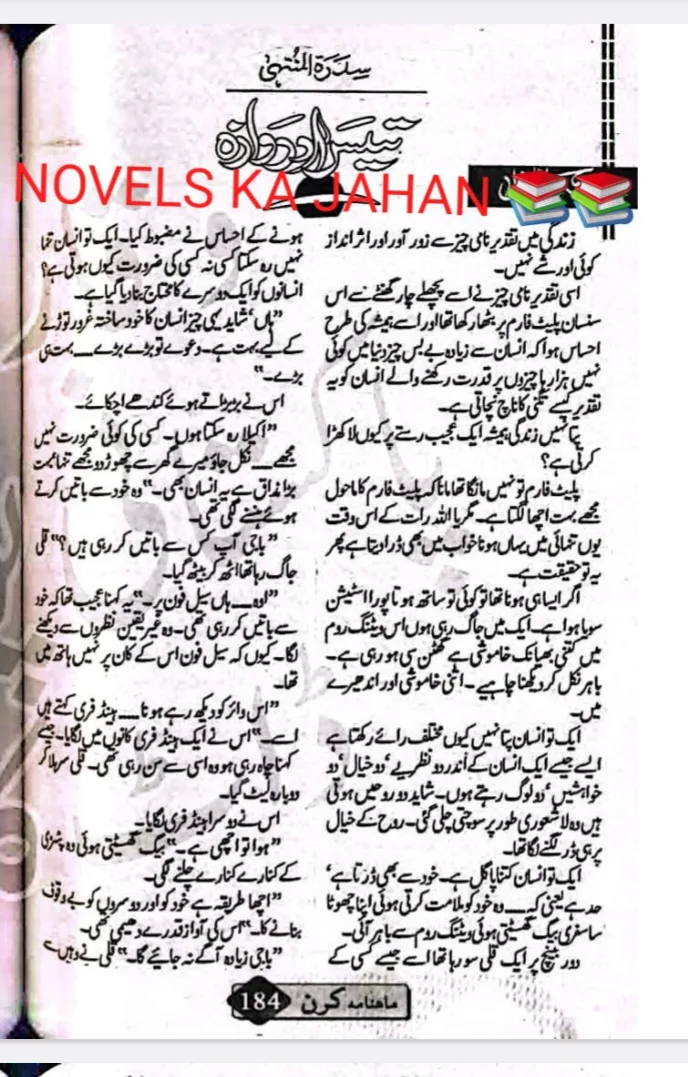 سدرۃ المنتہیٰ
تیسرا دروازہ
NOVELS KA JAHAN
زندگی میں تقدیر نامی چیز سے زور آور اور اثر انداز
کوئی اور شے نہیں۔
اسی تقدیر نامی چیز نے اسے پچھلے چار گھنٹے سے اس
سنسان پلیٹ فارم پر بٹھا رکھا تھا اور اسے ہمیشہ کی طرح
احساس ہوا کہ انسان سے زیادہ بے بس چیز دنیا میں کوئی
نہیں ہزارہا چیزوں پر قدرت رکھنے والے انسان کو یہ
تقدیر کیسے تگنی کا ناچ نچاتی ہے۔
پتا نہیں زندگی ہمیشہ ایک عجیب رستے پر کیوں لا کھڑا
کرتی ہے؟
پلیٹ فارم تو نہیں مانگا تھا مانا کہ پلیٹ فارم کا ماحول
مجھے بہت اچھا لگتا ہے۔ مگر یا اللہ رات کے اس وقت
یوں تنہائی میں یہاں ہونا خواب میں بھی ڈرا دیتا ہے پھر
یہ تو حقیقت ہے۔
اگر ایسا ہی ہونا تھا تو کوئی تو ساتھ ہوتا پورا اسٹیشن
سویا ہوا ہے۔ ایک میں جاگ رہی ہوں اس ویٹنگ روم
میں کتنی بھیانک خاموشی ہے گھٹن سی ہو رہی ہے۔
باہر نکل کر دیکھنا چاہیے۔ اتنی خاموشی اور اندھیرے
میں۔
ایک تو انسان پتا نہیں کیوں مختلف رائے رکھتا ہے
ایسے جیسے ایک انسان کے اندر دو نظریے، دو خیال، دو
خواہشیں، دو لوگ رہتے ہوں۔ شاید دو روحیں ہوتی
ہیں وہ لاشعوری طور پر سوچتی چلی گئی۔ روح کے خیال
پر ہی ڈر لگنے لگا تھا۔
ایک تو انسان کتنا پاگل ہے۔ خود سے بھی ڈرتا ہے،
حد ہے یعنی کہ ۔۔۔ وہ خود کو ملامت کرتی ہوئی اپنا چھوٹا
سا سفری بیگ گھسیٹتی ہوئی ویٹنگ روم سے باہر آئی۔
دور بینچ پر ایک قلی سو رہا تھا اسے جیسے کسی کے
ہونے کے احساس نے مضبوط کیا۔ ایک تو انسان تنہا
نہیں رہ سکتا کسی نہ کسی کی ضرورت کیوں ہوتی ہے؟
انسانوں کو ایک دوسرے کا محتاج بنا دیا گیا ہے۔
"ہاں، شاید یہی چیز انسان کا خود ساختہ غرور توڑنے
کے لیے بہت ہے۔ دعوے تو بڑے بڑے ۔۔۔ بہت ہی
بڑے۔"
اس نے بڑبڑاتے ہوئے کندھے اچکائے۔
"اکیلا رہ سکتا ہوں۔ کسی کی کوئی ضرورت نہیں
مجھے ۔۔۔ نکل جاؤ میرے گھر سے چھوڑ دو مجھے تنہا بہت
بڑا مذاق ہے یہ انسان بھی۔" وہ خود سے باتیں کرتے
ہوئے ہنسنے لگی تھی۔
"باجی آپ کس سے باتیں کر رہی ہیں؟" قلی
جاگ رہا تھا اٹھ کر بیٹھ گیا۔
"اوہ ۔۔۔ ہاں سیل فون پر۔" یہ کہنا عجیب تھا کہ خود
سے باتیں کر رہی تھی۔ وہ غیر یقین نظروں سے دیکھنے
لگا۔ کیوں کہ سیل فون اس کے کان پر نہیں ہاتھ میں
تھا۔
"اس وائر کو دیکھ رہے ہو نا ۔۔۔ ہینڈ فری کہتے ہیں
اسے۔" اس نے ایک ہینڈ فری کانوں میں لگایا۔ جیسے
کہنا چاہ رہی ہو وہ اسی سے سن رہی تھی۔ قلی سر ہلا کر
دوبارہ لیٹ گیا۔
اس نے دوسرا ہینڈ فری لگایا۔
"ہوا تو اچھی ہے۔" بیگ گھسیٹتی ہوئی وہ پٹڑی
کے کنارے کنارے چلنے لگی۔
"اچھا طریقہ ہے خود کو اور دوسروں کو بے وقوف
بنانے کا۔" اس کی آواز قدرے دھیمی تھی۔
"باجی زیادہ آگے نہ جائیے گا۔" قلی نے وہیں سے
ماهنامہ کرن 184